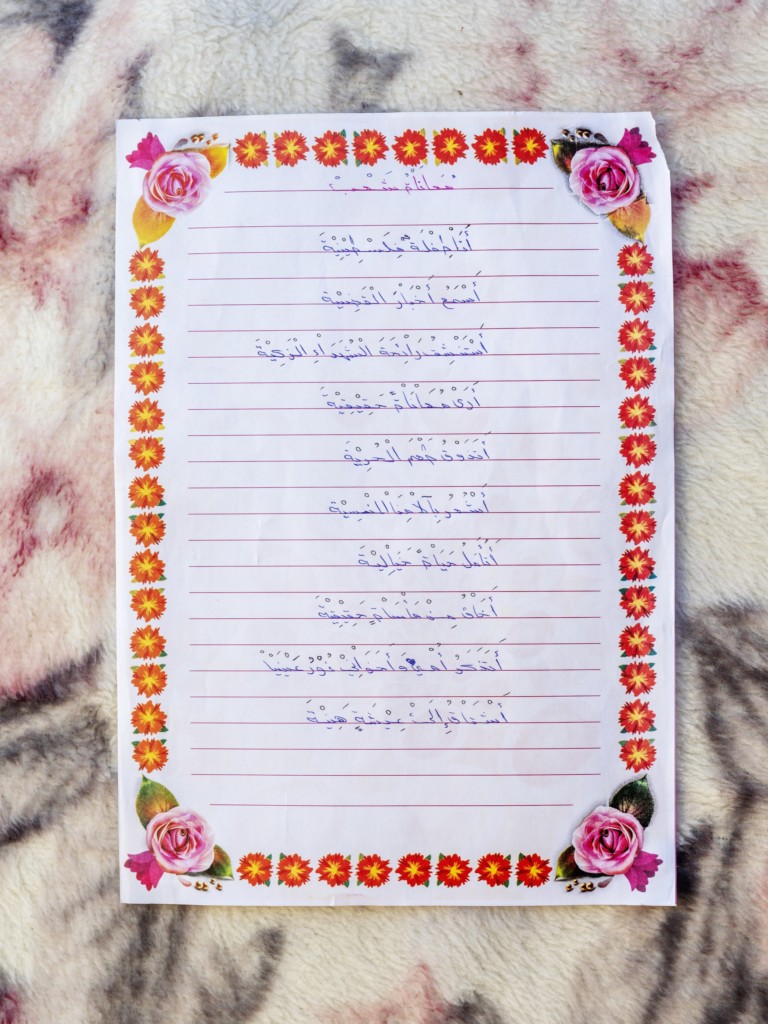 مُعَانَاةُ شَعْبْ
أَنَا طِفْلَةٌ فِلَسْطِينِيَّةْ
أَسْمَعُ أَخْبَارَ الْقَضِيَّةْ
أَسْتَنْشِقُ رَائِحَةَ الْشُهَدَاْءِ الْزَكِيَّةْ
أَرَىْ مُعَاْنَاْةً حَقِيْقِيَّةْ
أَتَذَوَّقُ طَعْمَ الْحُرِيَّةْ
أَشْعُرُ بِآلَاْمِيَ الْنَفْسِيَّةْ
أَتَأَمَلُ حَيَاْةً خَيَاْلِيَّةْ
أَخَاْفُ مِنْ مَأْسَاْةٍ حَقِيْقِيَّةْ
أَتَذَكَرُ أُمِّيْ وَ أَخَوَاْتِيْ نُوْرُ عَيْنَيَاْ
أَشْتَاْقُ إِلَىْ عِيْشَةٍ هَنِيَّةْ